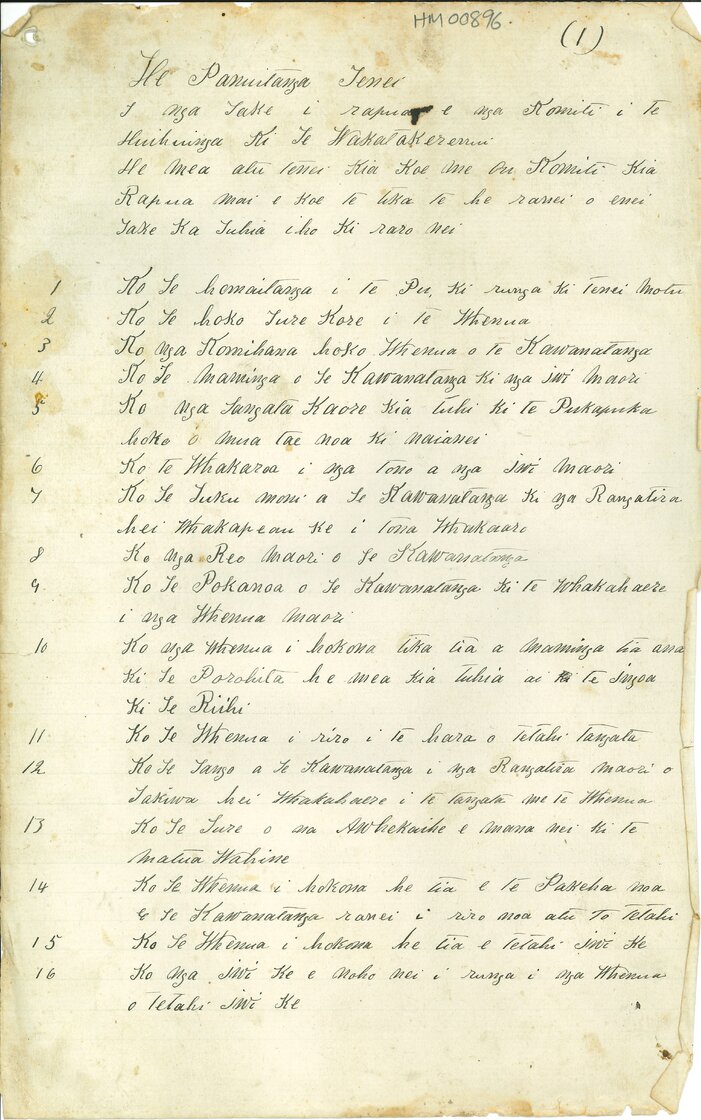 HM00896.
(1)
He Panuitanga Tenei
I nga Take i rapua e nga Komiti i te
Huihuinga Ki Te Wakatakerenui
He mea atu tenei Kia Koe me Ou Komiti Kia
Rapua mai e Koe te tika te he ranei o enei
Take Ka Tuhia iho Ki raro nei
1 Ko Te homaitanga i te Pu, Ki runga Ki tenei Motu
2 Ko Te hoko Ture Kore i te Whenua
3 Ko nga Komihana hoko Whenua o te Kawanatanga
4 Ko Te maminga o Te Kawanatanga Ki nga iwi Maori
5 Ko nga Tangata Kaore Kia tuhi Ki te Pukapuka
hoko o mua tae noa Ki naianei
6 Ko te Whakaroa i nga tono a nga iwi Maori
7 Ko Te Tuku moni a Te Kawanatanga Ki nga Rangatira
hei Whakapeau Ke i tona Whakaaro
8 Ko nga Reo Maori o Te Kawanatanga
9. Ko Te Pokanoa o Te Kawanatanga Ki te Whakahaere
i nga Whenua Maori
10 Ko nga Whenua i hokona tika tia a maminga tia ana
Ki Te Porohita he mea Kia tuhia ai te ingoa
Ki Te Riihi
11 Ko Te Whenua i riro i te hara o tetahi tangata
12 Ko Te Tango a Te Kawanatanga i nga Rangatira Maori o
Takiwa hei Whakahaere i te tangata me te Whenua
13 Ko Te Ture o na Awhekaihe e mana nei Ki te
Matua Wahine
14 Ko Te Whenua i hokona he tia e te Pakeha noa
E Te Kawanatanga ranei i riro noa atu to tetahi
15 Ko Te Whenua i hokona he tia e tetahi iwi Ke
16 Ko nga iwi Ke e noho nei i runga i nga Whenua
o tetahi iwi Ke